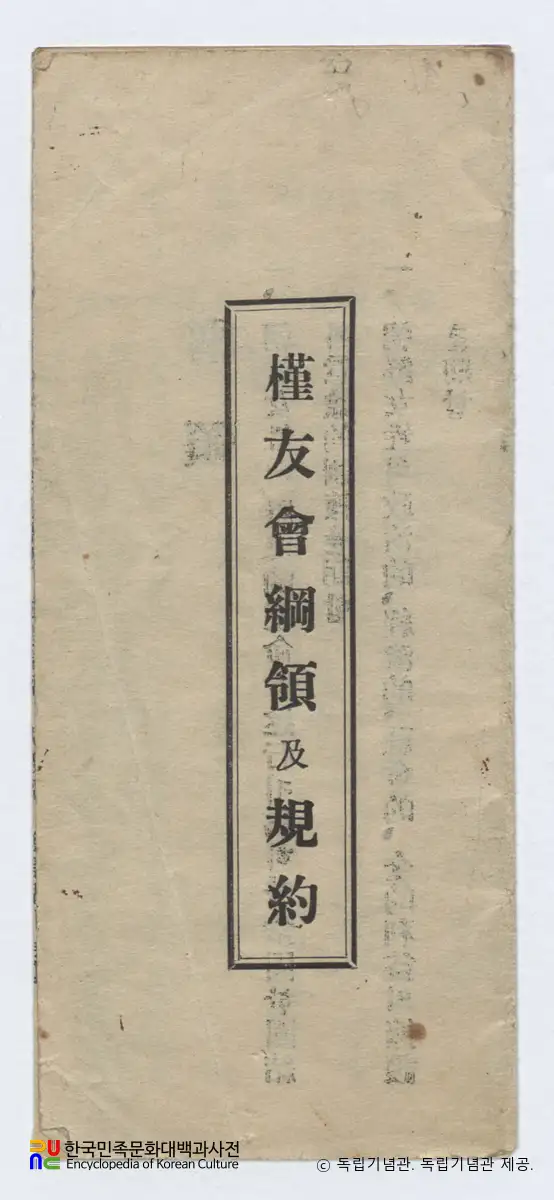 槿友會綱領及規約
한국민족문화대백과사전
Encyclopedia of Korean Culture
© 독립기념관. 독립기념관 제공.